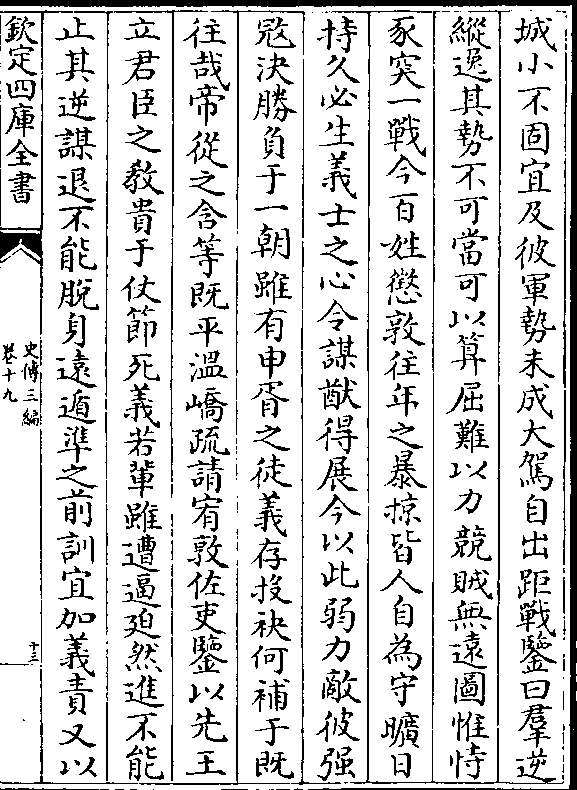 城小不固宜及彼軍勢未成大駕自出距戰鑒曰羣逆
縱逸其勢不可當可以算屈難以力競賊無遠圖惟恃
豕突一戰今百姓懲敦往年之暴掠皆人自為守曠日
持久必生義士之心令謀猷得展今以此弱力敵彼强
宼決勝負于一朝雖有申胥之徒義存投袂何補于既
往哉帝從之含等既平溫嶠疏請宥敦佐吏鑒以先王
立君臣之敎貴于仗節死義若輩雖遭逼廹然進不能
止其逆謀退不能脫身遠遁準之前訓宜加義責又以
欽定四庫全書
史傳三編
卷十九
十三